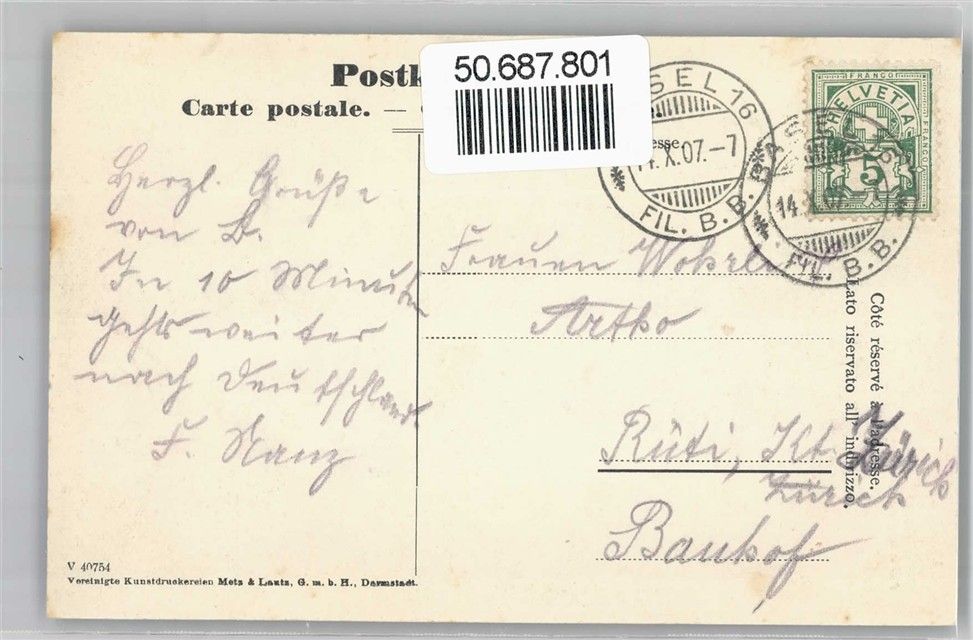 50.687.801
Postk
Carte postale. —
SEL 16
14.X.07.-7
FIL. B. B.
BASEL 16
14.
FIL. B. B.
FRANCO
HELVETIA
FRANCO
5
Côté réservé à l'adresse.
Lato riservato all' indirizzo.
Herzl. Grüße
von B.
In 10 Minuten
gehts weiter
nach Deutschland
F. Nanz
Frauen
Rüti, Kt. Zürich
Zürich
Bauhof
V 40754
Vereinigte Kunstdruckereien Metz & Lautz, G. m. b. H., Darmstadt.